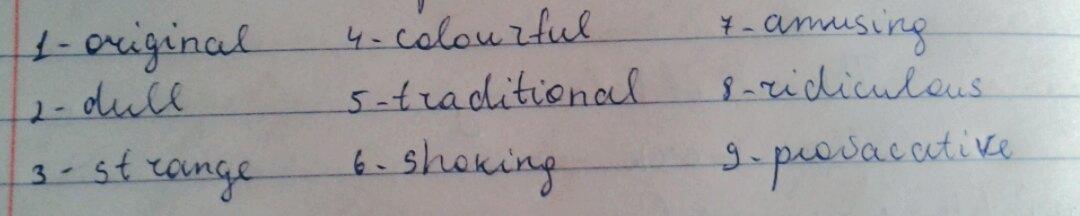 1- original 4- colourful 7- amusing
2- dull 5- traditional 8- ridiculous
3- strange 6- shoking 9- provacative